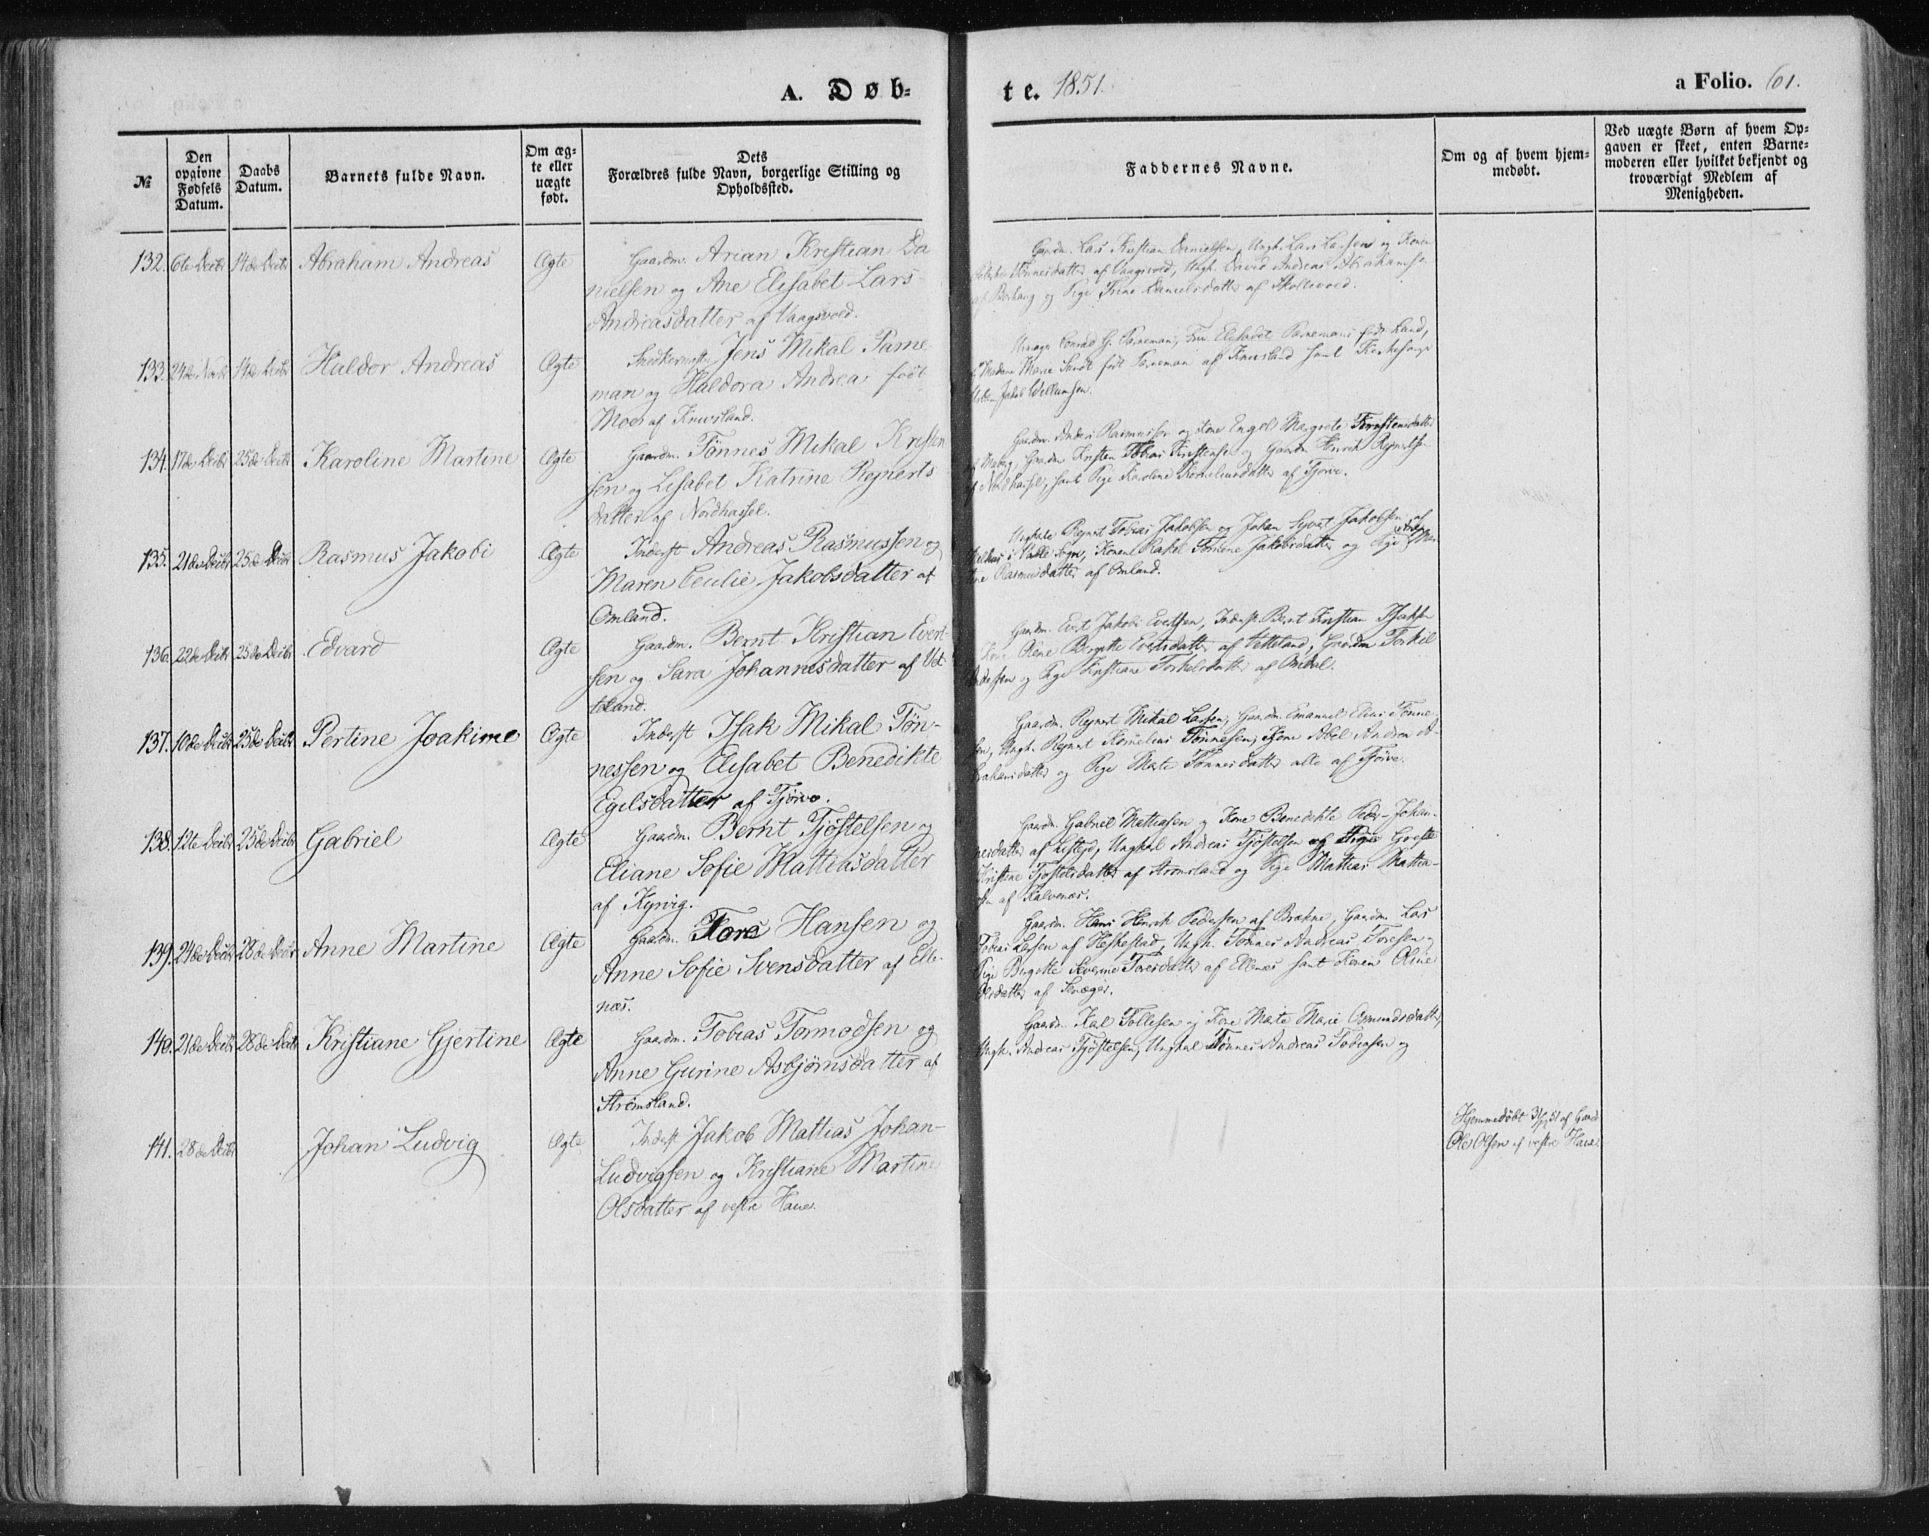 A. Døb-
te. 1851.
a Folio. 61.
№
Den opgivne Fødsels Datum.
Daabs Datum.
Barnets fulde Navn.
Om ægte eller uægte født.
Dets Forældres fulde Navn, borgerlige Stilling og Opholdssted.
Faddernes Navne.
Om og af hvem hjemmedøbt.
Ved uægte Børn af hvem Opgaven er skeet, enten Barnemoderen eller hvilket bekjendt og troværdigt Medlem af Menigheden.
132. 6te Decbr 14de Decbr Abraham Andreas Ægte Gaardm. Arian Kristian Da
nielsen og Ane Elisabet Lars
Andreasdatter af Vaagsvold.
Gaardm. Lars Kristian Danielsen, Ungk. Lars Larsen og Konen
Tønnesdatter af Vaagsvold, Ungk. David Andreas Abrahams
af Borhaug og Pige Trine Danielsdatter af Skollevold.
133. 24de 14de Decbr Haldor Andreas Ægte Snedkermstr Jens Mikal Parne
man og Haldora Andrea født
Moe af Knivsland.
Conrad G. Parneman, Fru Elisabet Parneman født Lund,
Madam Marie Sandt født Parneman af Knivsland samt Kirkesanger
Jakob Willumsen.
134. 17de Decbr 25de Decbr Karoline Martine Ægte Gaardm. Tønnes Mikal Kristen
sen og Lisabet Katrine Reinerts
datter af Nordhassel.
Gaardm. Anders Rasmussen og Kone Engel Margrete Torstensdatter
af Maberg, Gaardm Kristen Tobias Kristensen og Gaardm Henrik Reinertse
af Nordhassel, samt Pige Karoline Korneliusdatter af Tjørve.
135. 21de Decbr 25de Decbr Rasmus Jakobi Ægte Inderst Andreas Rasmussen og
Maren Cecilie Jakobsdatter af
Omland.
Ungkarle Reinert Tobias Jakobsen og Johan Syvert Jakobsen af
i Valle Sogn, Konen Rakel Tomine Jakobsdatter og Pige Mar
tine Rasmusdatter af Omland.
136. 22de Decbr 25de Decbr Edvard Ægte Gaardm. Bernt Kristian Evert
sen og Sara Johannesdatter af Vet
teland.
Gaardm. Evert Jakobi Evertsen, Inderst Bernt Kristian Isaksen
Kone Olene Birgitte Evertsdatter af Vetteland, Gaardm Torkil
Andersen og Pige Kristiane Torkelsdatter af Omdal.
137. 10de Decbr 25de Decbr Pertine Joakime Ægte Inderst Isak Mikal Tøn-
nessen og Elisabet Benedikte
Egilsdatter af Tjørve.
Gaardm. Reinert Mikal Larsen, Gaardm. Emanuel Elias Tønne
sen, Ungk. Reinert Kornelius Tønnesen, Kone Abel Andrea A-
brahamsdatter og Pige Marte Tønnesdatter alle af Tjørve.
138. 12te Decbr 25de Decbr Gabriel Ægte Gaardm. Bernt Tjøstelsen og
Eliane Sofie Mattiasdatter
af Kjrvig.
Gaardm. Gabriel Mattiassen og Kone Benedikte Peder-Johan-
nesdatter af, Ungkarl Andreas Tjøstelsen og Pige Grete
Kristine Tjøstelsdatter af Strømsland og Pige Mattias Mattia-
sen af Kalvenæs.
139. 24de Decbr 28de Decbr Anne Martine Ægte Gaardm. Tore Hansen og
Anne Sofie Svensdatter af Elle-
næs.
Gaardm. Hans Henrik Pedersen af Brækne, Gaardm. Lars
Tobias Larsen af Heskestad, Ungk. Tønnes Andreas Toresen og
Pige Birgitte Severine Toresdatter af Ellenæs samt Konen Oline
Olsdatter af.
140. 21de Decbr 28de Decbr Kristiane Gjertine Ægte Gaardm. Tobias Tormodsen og
Anne Gurine Asbjørnsdatter af
Strømsland.
Gaardm. Kal Tollefsen og Kone Marte Marie Osmundsdatter,
Ungk. Andreas Tjøstelsen, Ungkarl Tønnes Andreas Tobiasen og
141. 28de Decbr Johan Ludvig Ægte Inderst Jakob Mattias Johan-
Ludvigsen og Kristiane Martine
Olsdatter af vestre Haue.
Hjemmedøbt 31/12 51 af Gaardm
Ole Olsen af vestre Haue.